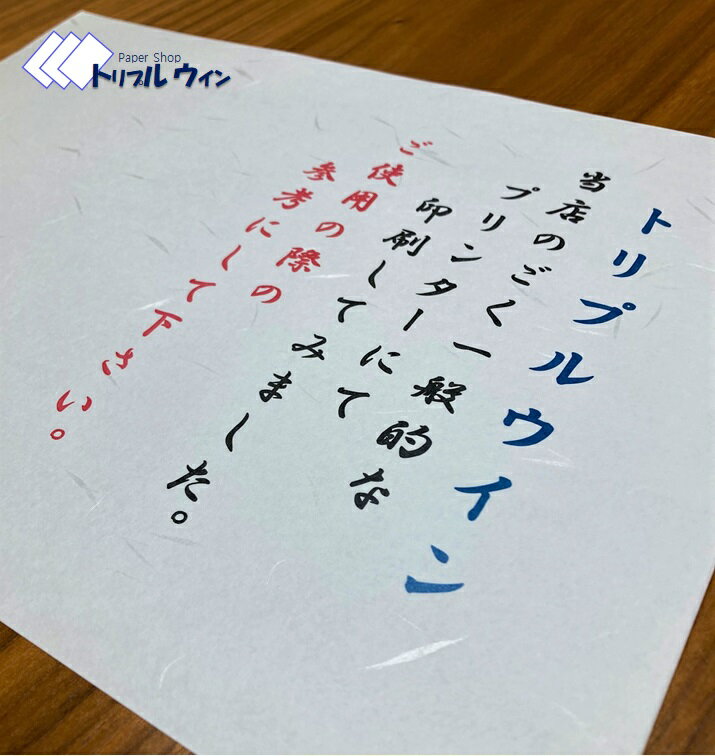 Paper Shop
トリプル ウイン
トリプルウイン
当店のごく一般的な
プリンターにて
印刷してみました。
ご使用の際の
参考にして下さい。